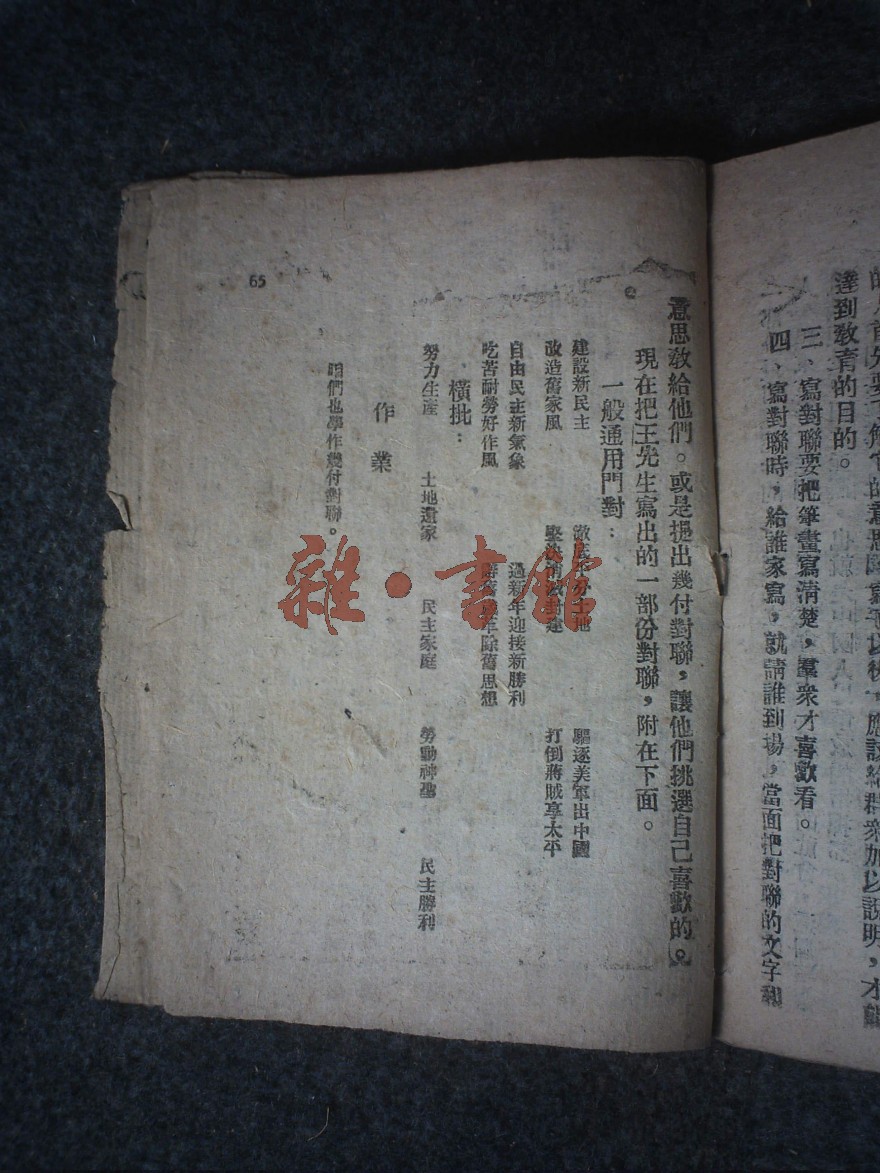 以後，應該給群衆加以說明，才能
達到教育的目的。
三、寫對聯要把筆畫寫清楚，羣衆才喜歡看。
四、寫對聯時，給誰家寫，就請誰到場，當面把對聯的文字和
意思教給他們。或是提出幾付對聯，讓他們挑選自己喜歡的。
現在把王先生寫出的一部份對聯，附在下面。
一般通用門對：
建設新民主　徹底平分土地　驅逐美軍出中國
改造舊家風　堅決消滅封建　打倒蔣賊享太平
自由民主新氣象　過新年迎接新勝利
吃苦耐勞好作風　辭舊歲革除舊思想
橫批：
努力生產　土地還家　民主家庭　勞動神聖　民主勝利
作業
咱們也學作幾付對聯。
65
雜·書館